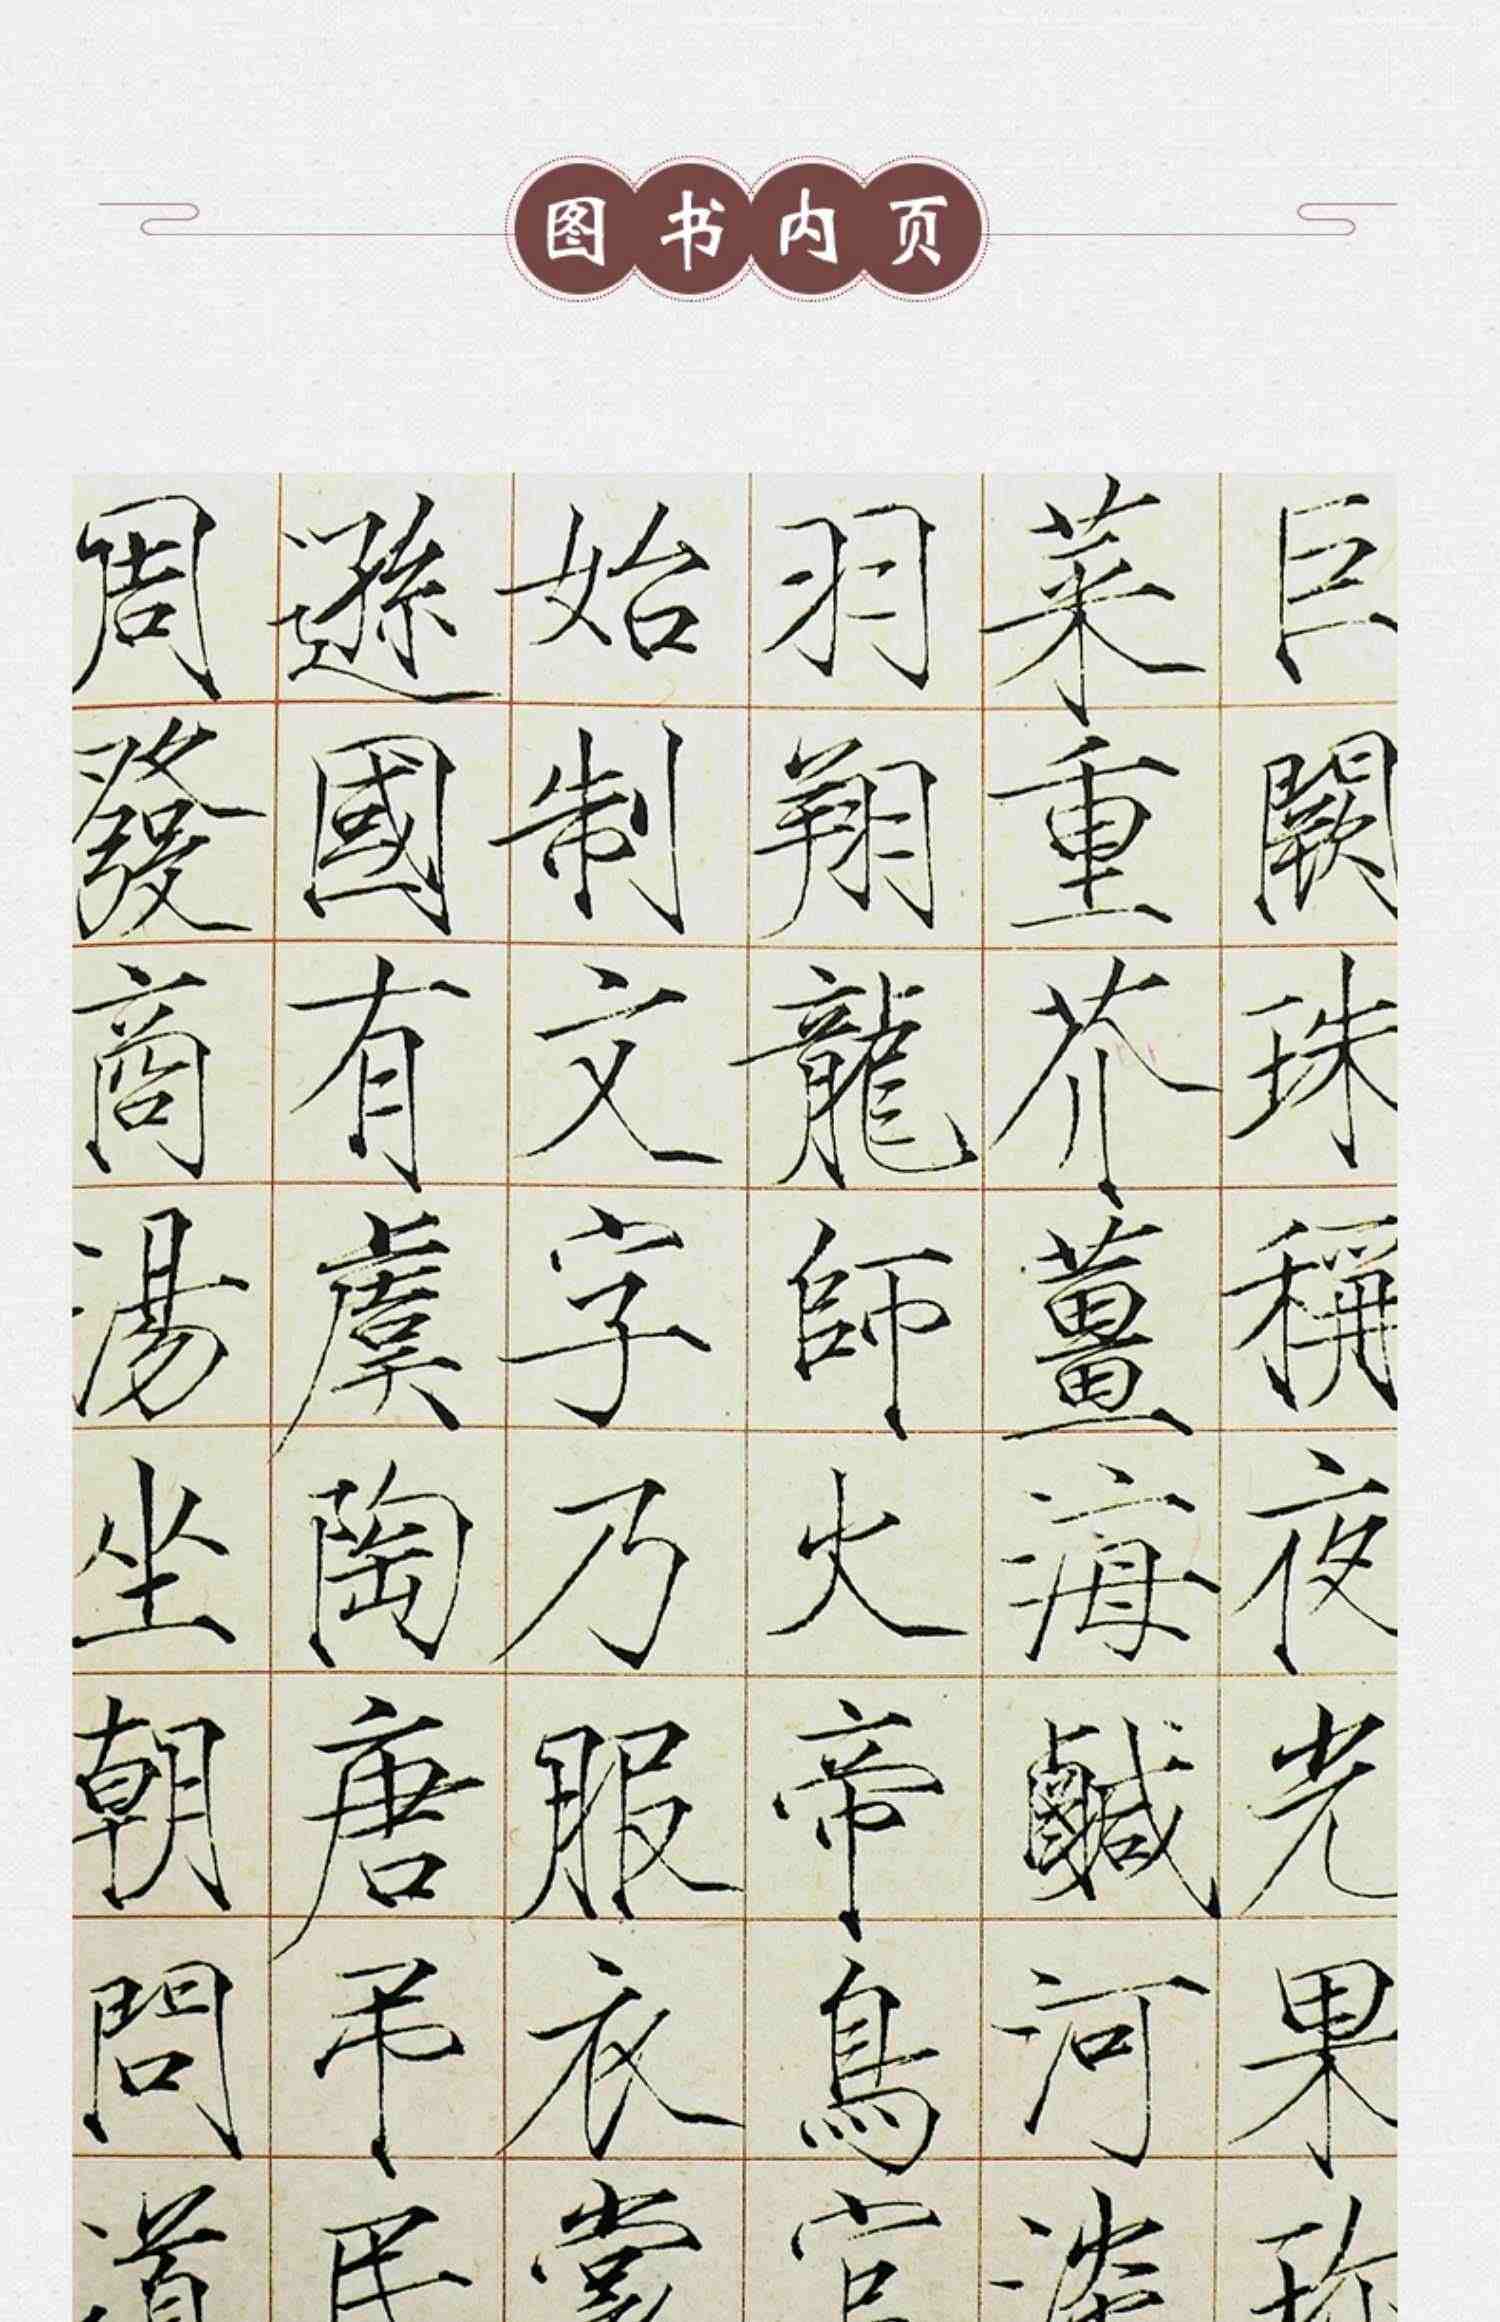 图书内页
巨闕珠稱夜光果珍
菜重芥薑海鹹河淡
羽翔龍師火帝鳥官
始制文字乃服衣裳
遜國有虞陶唐弔民
周發商湯坐朝問道